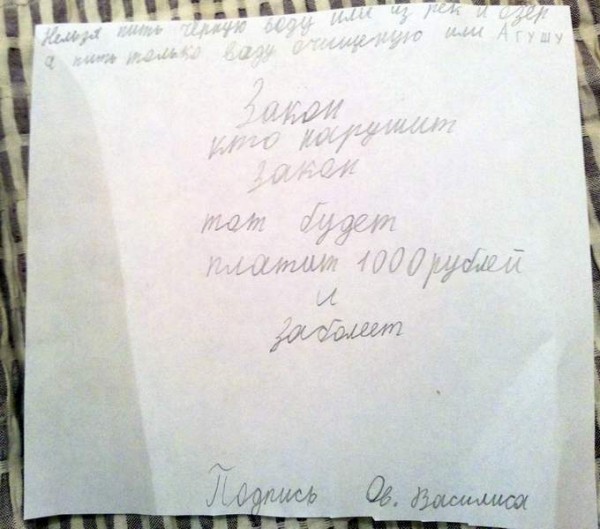 Нельзя пить чёрную воду или из рек и озер
а пить только ваду очищеную или Агушу
Закон
кто нарушит
закон
тот будет
платит 1000 рублей
и
заболеет
Подпись Ов. Василиса